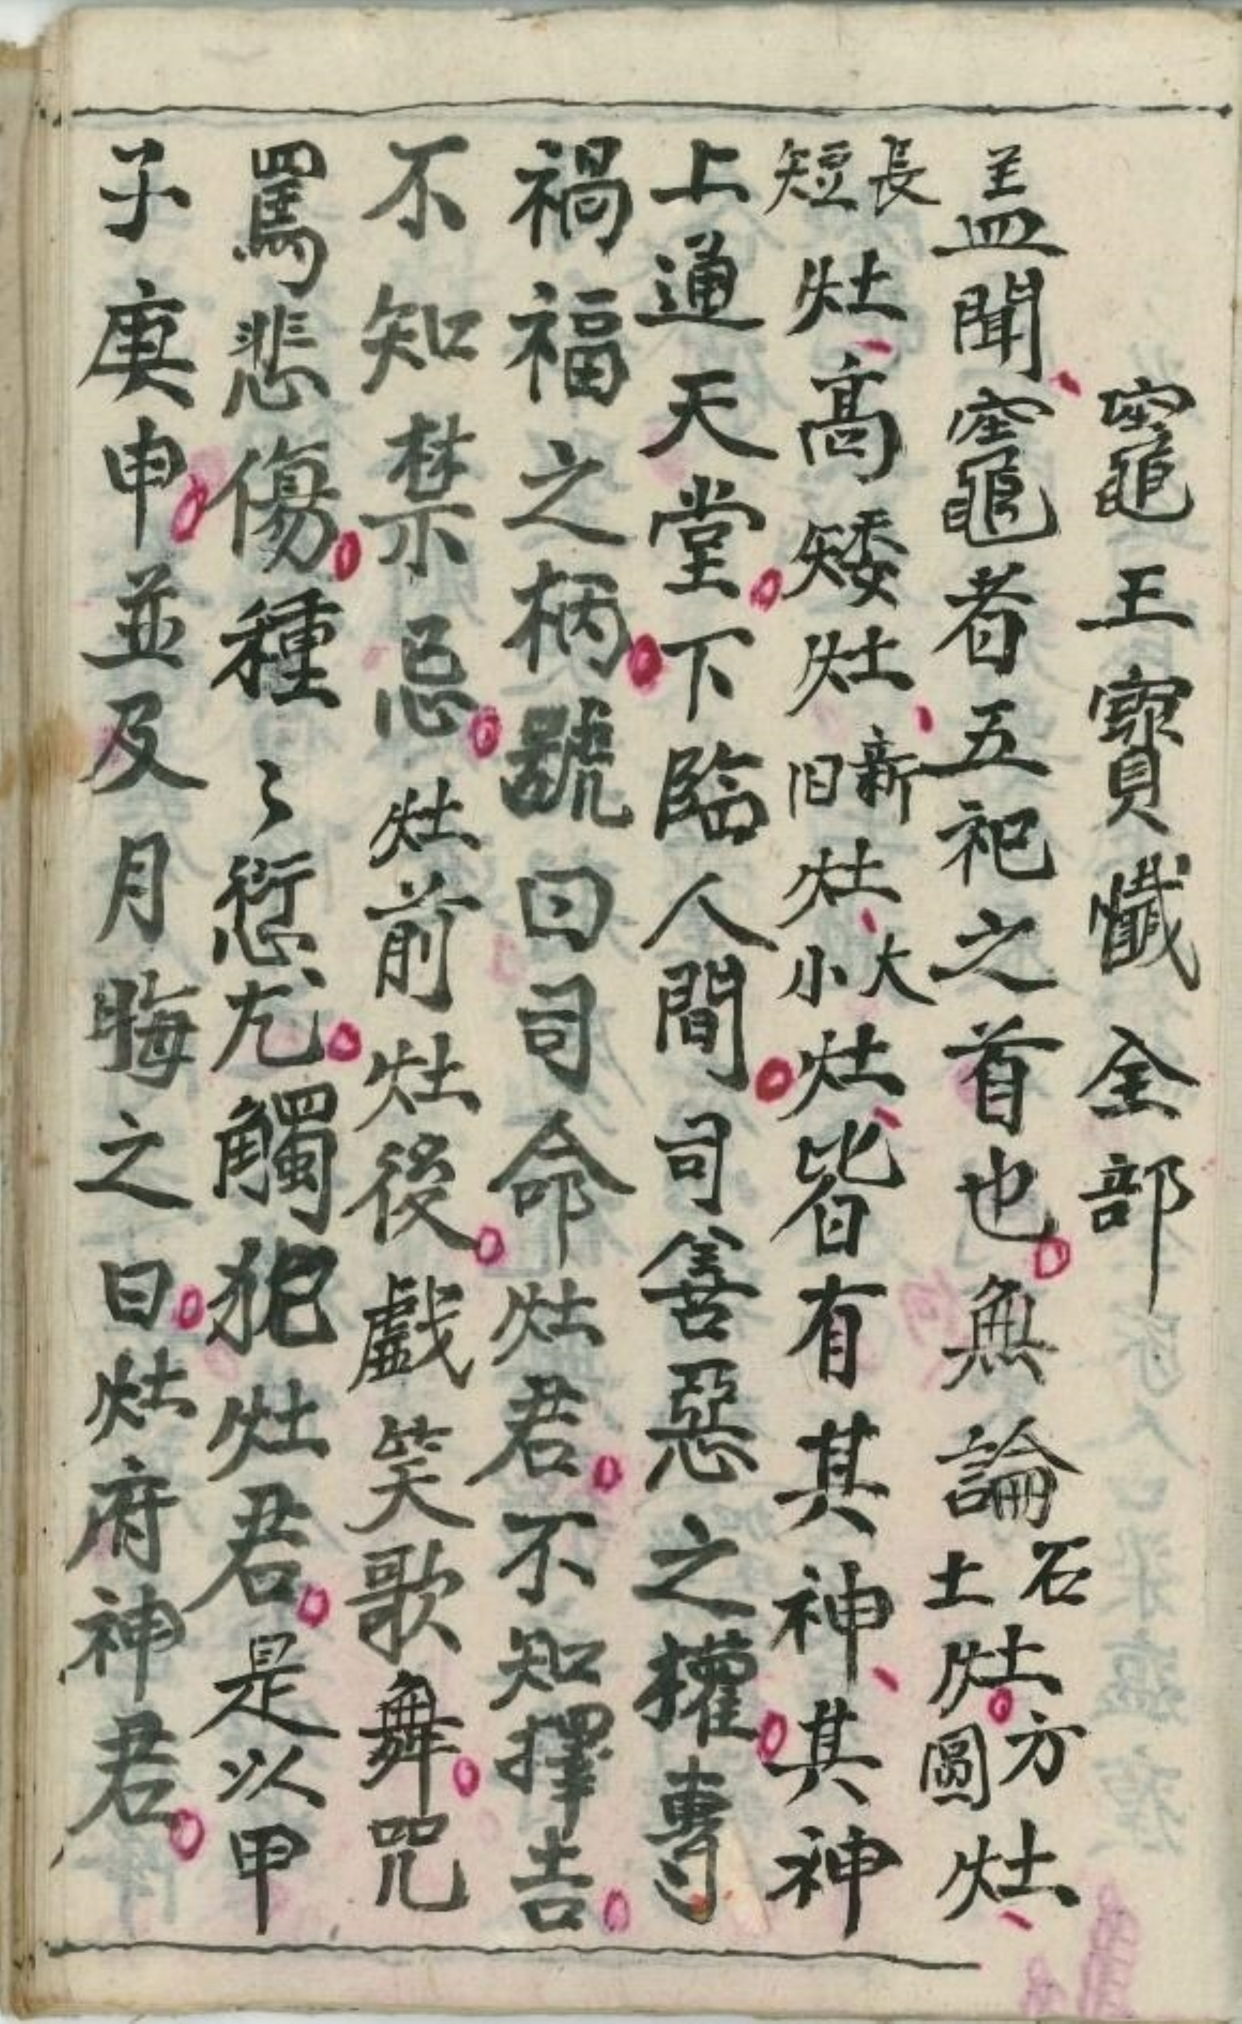 竈王寳懺 全部
盖聞、竈者五祀之首也。無論石土灶。方圓灶、
長短灶、高矮灶、新旧灶、大小灶、皆有其神、其神
上通天堂。下臨人間。司善惡之權。專
禍福之柄。號曰司命灶君。不知擇吉。
不知禁忌。灶前灶後。戲笑歌舞。咒
罵悲傷。種〻愆尤。觸犯灶君。是以甲
子庚申。並及月晦之日。灶府神君。